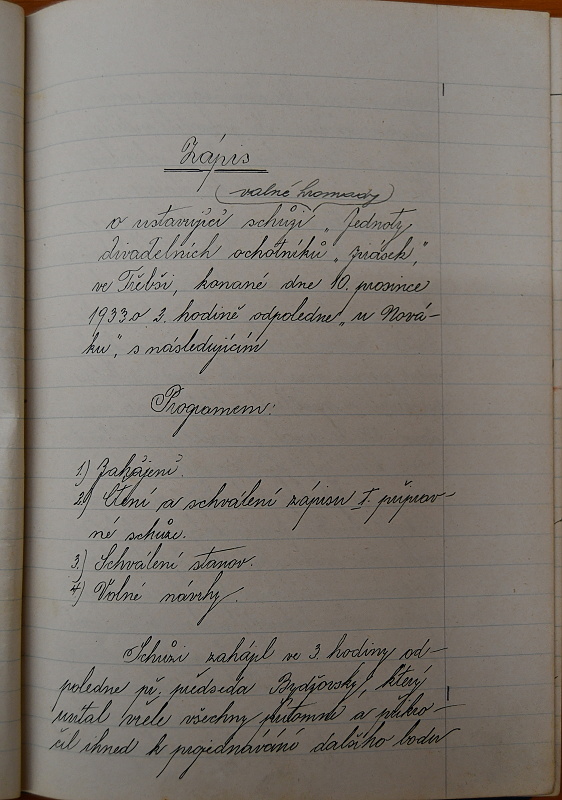 Zápis
(valné hromady)
o ustavující schůzi „Jednoty
divadelních ochotníků „Jirásek",
ve Třebši, konané dne 10. prosince
1933 o 2. hodině odpoledne „u Nová-
ků", s následujícím
Programem:
1.) Zahájení.
2.) Čtení a schválení zápisu I. příprav-
né schůze.
3.) Schválení stanov.
4.) Volné návrhy.
Schůzi zahájil ve 3. hodiny od-
poledne př. předseda Bydžovský, který
uvítal vřele všechny přítomné a přikro-
čil ihned k projednávání dalšího bodu